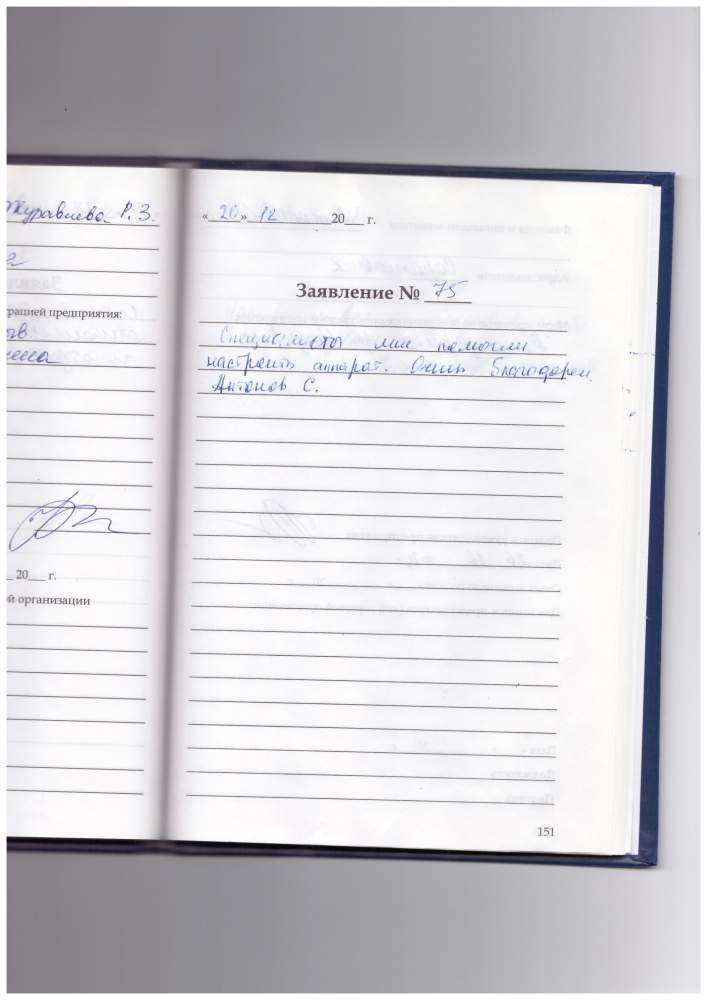 Журавлева Р.З.
рацией предприятия:
20___ г.
й организации
«20» 12 20___ г.
Заявление № 75
Специалисты мне помогли
настроить аппарат. Очень благодарен.
Антонов С.
151